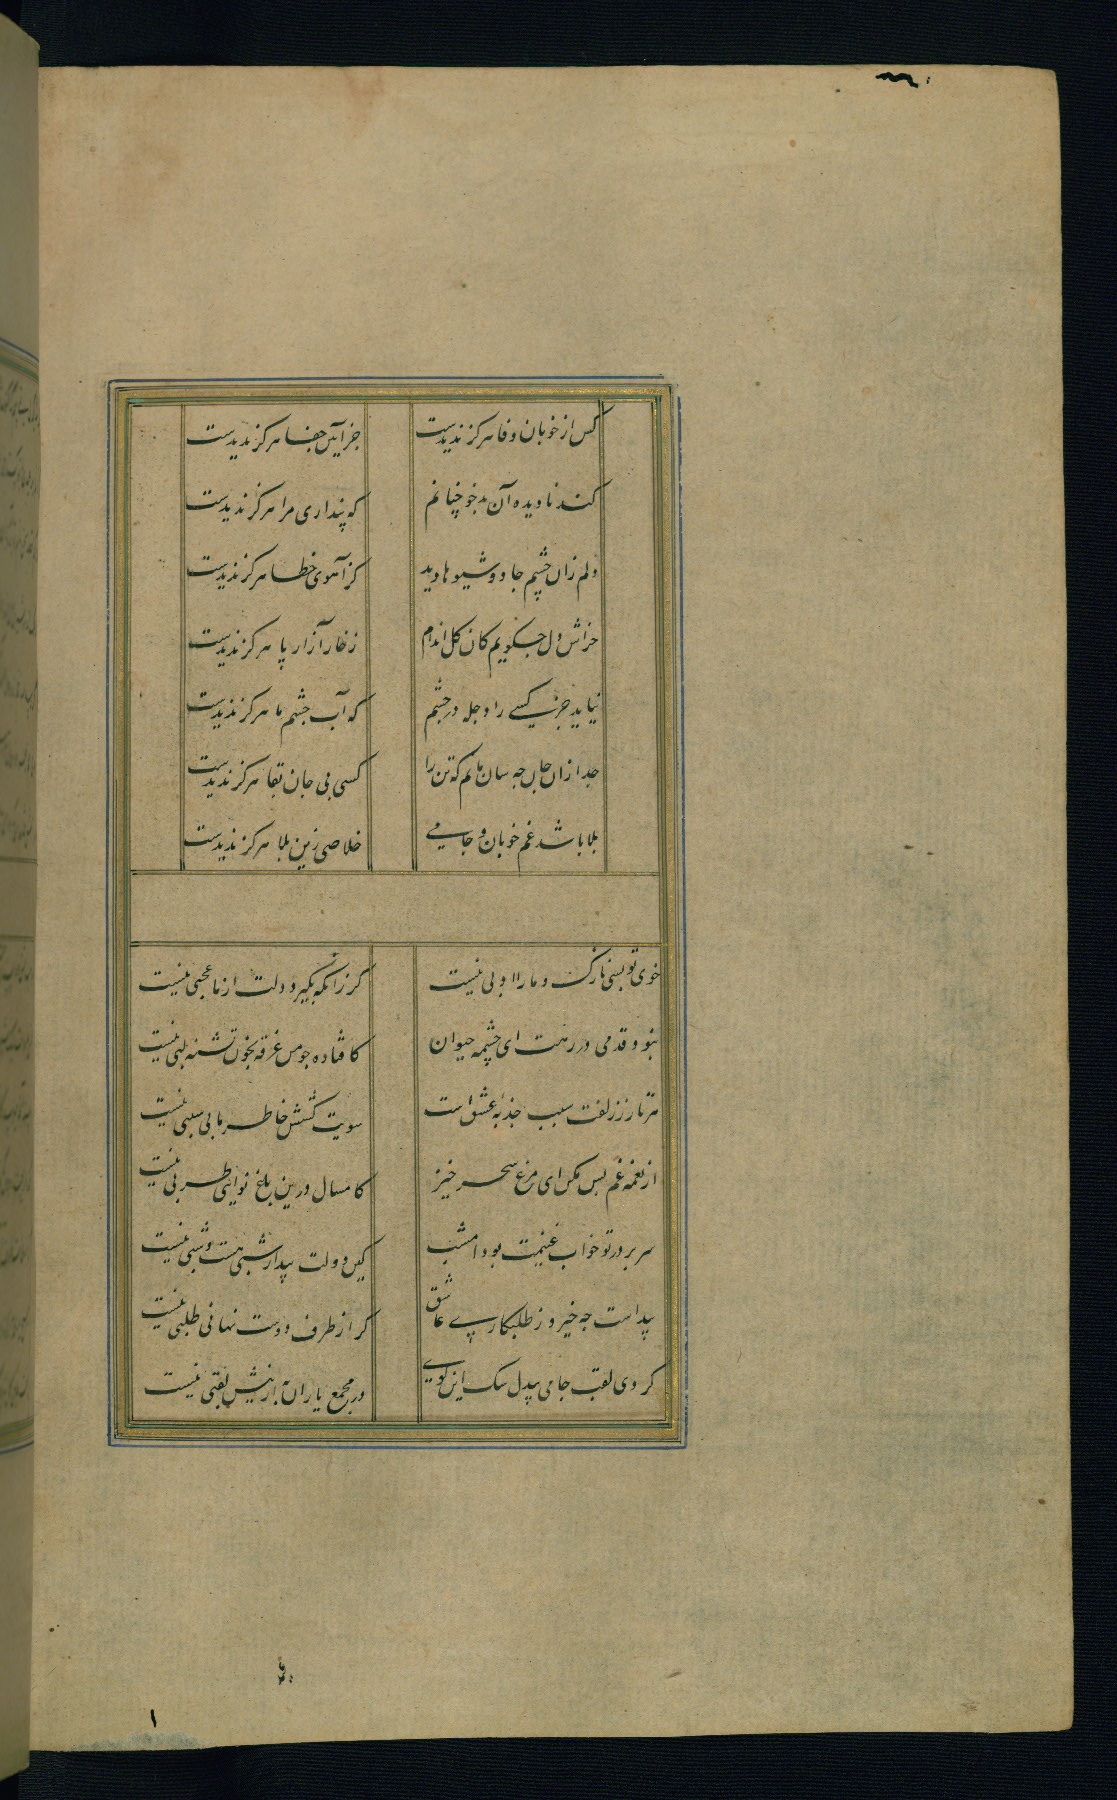 کس از خوبان وفا هرگز ندیدست
جز آیین جفا هرگز ندیدست
کند نادیده آن بدخو چنانم
که پنداری مرا هرگز ندیدست
دلم زان چشم جادو شیوها دید
کز آهوی خطا هرگز ندیدست
خراش دل چگویم کان گل اندام
ز خار آزار پا هرگز ندیدست
نیاید جز کسی را دجله در چشم
که آب چشم ما هرگز ندیدست
جدا زان جان چه سان مانم که تن را
کسی بی جان بقا هرگز ندیدست
بلا باشد غم خوبان و جامی
خلاصی زین بلا هرگز ندیدست
خوی تو بسی نازک و ما را ادبی نیست
گر زانکه بگیرد دلت از ما عجبی نیست
ننهد قدمی در رهت ای چشمه حیوان
کافتاده چو من غرقه بخون تشنه لبی نیست
هر تار ز زلفت سبب جذبه عشق است
سویت کشش خاطر ما بی سببی نیست
از نغمه غم بس مکن ای مرغ سحر خیز
کامسال درین باغ نوای طربی نیست
سر بر در تو خواب غنیمت بود امشب
کین دولت بیدار شبی هست و شبی نیست
پیداست چه خیزد ز طلبکاری عاشق
گر از طرف دوست نهانی طلبی نیست
کردی لقب جامی بیدل سگ این کوی
در مجمع یاران به ازینش لقبی نیست